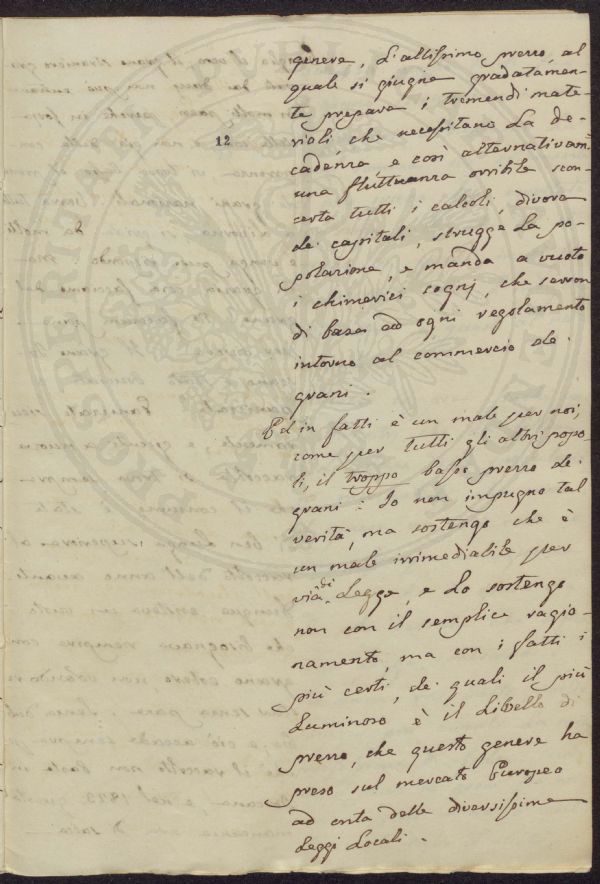 genere, L'altissimo prezzo, al
quale si giugne gradatamen-
te prepara i tremendi mate-
riali che necessitano La de-
12
cadenza e così alternativam.
una fluttuanza orribile scon-
certa tutti i calcoli, divora
de' capitali, strugge La po-
polazione, e manda a vuoto
i chimerici sogni, che servon
di base ad ogni regolamento
intorno al commercio de'
grani.
Ed in fatti è un male per noi,
come per tutti gli altri popo
li, il troppo basso prezzo de'
grani: Io non impugno tal
verità, ma sostengo che è
un male irrimediabile per
via di Legge, e Lo sostengo
non con il semplice ragio-
namento, ma con i fatti i
più certi, de' quali il più
Luminoso è il Libello di
prezzo, che questo genere ha
preso sul mercato Europeo
ad onta delle diversissime
Leggi Locali.